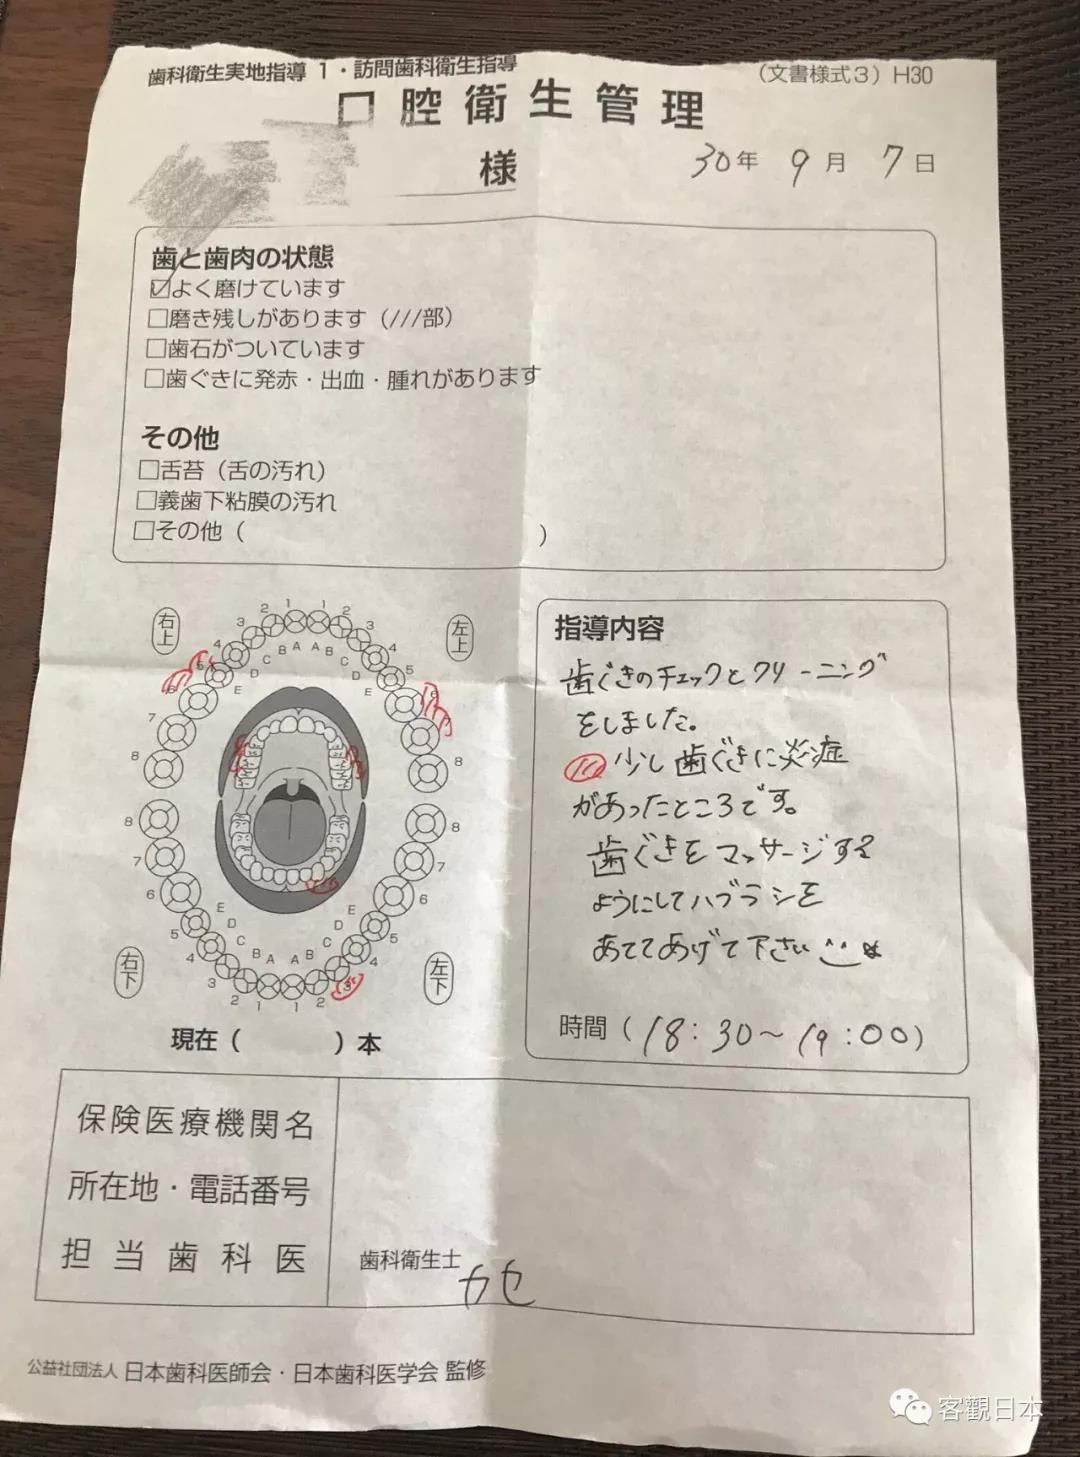 歯科衛生実地指導 1・訪問歯科衛生指導
（文書様式３）H30
口腔衛生管理
様
30年 9月 7日
歯と歯肉の状態
☑よく磨けています
□磨き残しがあります（///部）
□歯石がついています
□歯ぐきに発赤・出血・腫れがあります
その他
□舌苔（舌の汚れ）
□義歯下粘膜の汚れ
□その他（ ）
右上
左上
2 1 1 2
3 3
4 4
5
B A A B
C C
D D
E E
7
8 8
8 8
7 7
6 6
5 5
4 4
3
2 1 1 2
E E
D D
C C
B A A B
右下
左下
現在（ ）本
指導内容
歯ぐきのチェックとクリーニング
をしました。
少し歯ぐきに炎症
があったところです。
歯ぐきをマッサージする
ようにしてハブラシを
あててあげて下さい
時間（18：30～19：00）
保険医療機関名
所在地・電話番号
担当歯科医
歯科衛生士
公益社団法人 日本歯科医師会・日本歯科医学会 監修
客觀日本